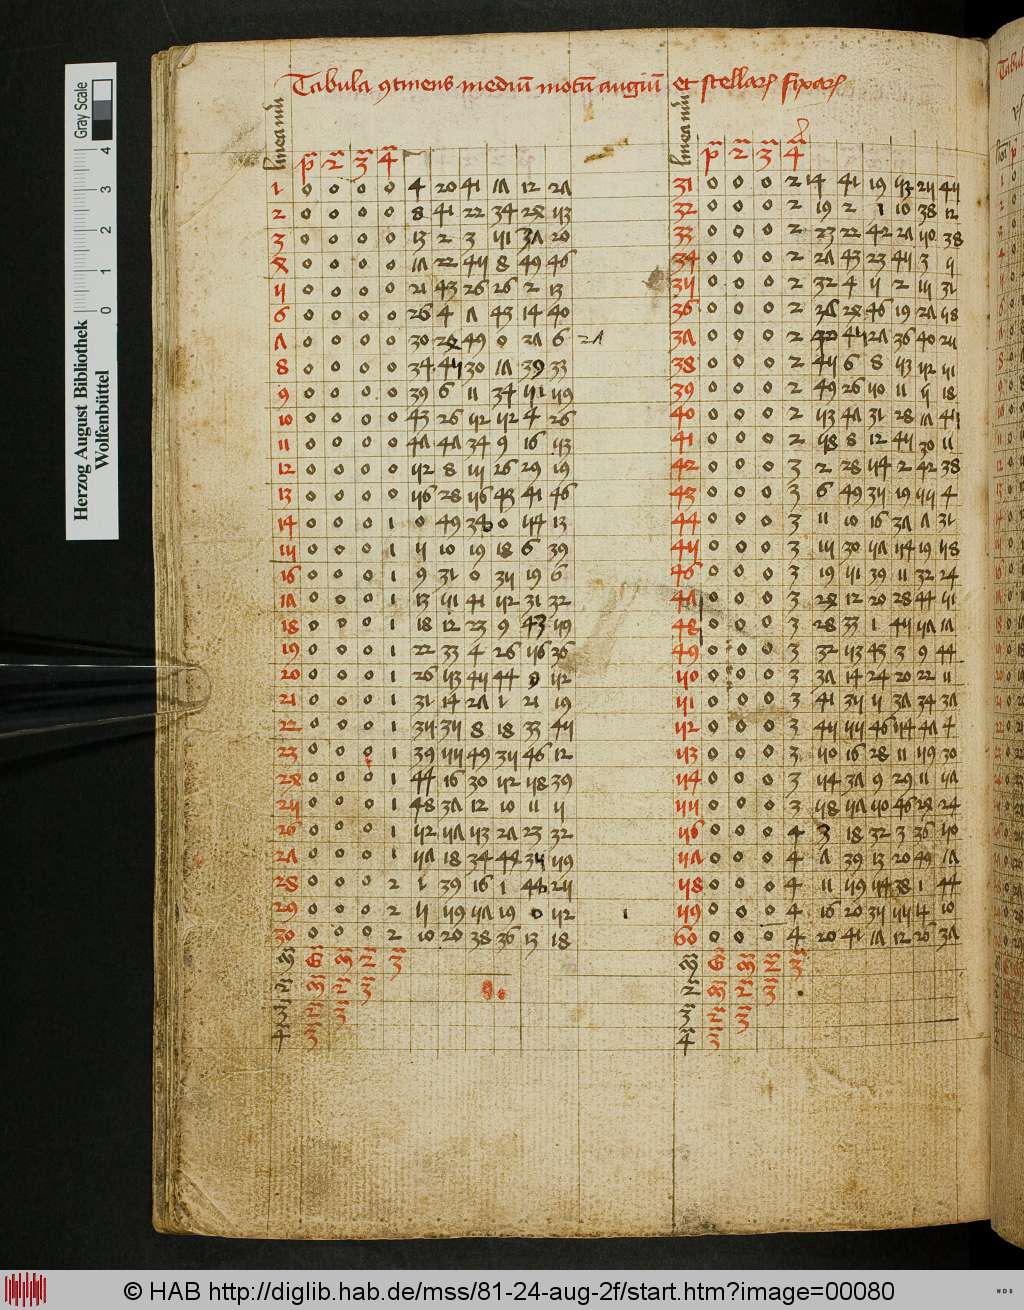 Tabula ꝯtinens mediū motū augiū et stellarꝝ fixarꝝ
linea nūi p̄ 2 3 4 linea nūi p̄ 2 3 4
1 0 0 0 0 4 20 41 17 12 27 31 0 0 0 2 14 41 19 53 25 45
2 0 0 0 0 8 41 22 34 24 53 32 0 0 0 2 19 2 1 10 38 12
3 0 0 0 0 13 2 3 51 37 20 33 0 0 0 2 23 22 42 27 50 38
4 0 0 0 0 17 22 45 8 49 46 34 0 0 0 2 27 43 23 45 3 5
5 0 0 0 0 21 43 26 26 2 13 35 0 0 0 2 32 4 5 2 15 31
6 0 0 0 0 26 4 7 43 14 40 36 0 0 0 2 24 46 19 27 58
7 0 0 0 0 30 24 49 0 27 6 27 37 0 0 0 2 45 27 36 40 25
8 0 0 0 0 34 45 30 17 39 33 38 0 0 0 2 45 6 8 53 52 51
9 0 0 0 0 39 6 11 34 51 59 39 0 0 0 2 49 26 50 11 5 18
10 0 0 0 0 43 26 52 52 4 26 40 0 0 0 2 53 47 31 28 17 45
11 0 0 0 0 47 47 34 9 16 53 41 0 0 0 2 58 8 12 45 30 11
12 0 0 0 0 52 8 15 26 29 19 42 0 0 0 3 2 28 54 2 42 38
13 0 0 0 0 56 28 56 43 41 46 43 0 0 0 3 6 49 35 19 55 4
14 0 0 0 1 0 49 38 0 54 13 44 0 0 0 3 11 10 16 37 7 31
15 0 0 0 1 5 10 19 18 6 39 45 0 0 0 3 15 30 57 54 19 58
16 0 0 0 1 9 31 0 35 19 6 46 0 0 0 3 19 51 39 11 32 24
17 0 0 0 1 13 51 41 52 31 32 47 0 0 0 3 24 12 20 28 44 51
18 0 0 0 1 18 12 23 9 43 59 48 0 0 0 3 28 33 1 45 57 17
19 0 0 0 1 22 33 4 26 56 26 49 0 0 0 3 32 53 43 3 9 44
20 0 0 0 1 26 53 45 44 8 52 50 0 0 0 3 37 14 24 20 22 11
21 0 0 0 1 31 14 27 1 21 19 51 0 0 0 3 41 35 5 37 34 37
22 0 0 0 1 35 35 8 18 33 45 52 0 0 0 3 45 55 46 54 47 4
23 0 0 0 1 39 55 49 35 46 12 53 0 0 0 3 50 16 28 11 59 30
24 0 0 0 1 44 16 30 52 58 39 54 0 0 0 3 54 37 9 29 11 57
25 0 0 0 1 48 37 12 10 11 5 55 0 0 0 3 58 57 50 46 24 24
26 0 0 0 1 52 57 53 27 23 32 56 0 0 0 4 3 18 32 3 36 50
27 0 0 0 1 57 18 34 44 35 59 57 0 0 0 4 7 39 13 20 49 17
28 0 0 0 2 1 39 16 1 48 25 58 0 0 0 4 11 59 54 38 1 44
29 0 0 0 2 5 59 57 19 0 52 1 59 0 0 0 4 16 20 35 55 14 10
30 0 0 0 2 10 20 38 36 13 18 60 0 0 0 4 20 41 17 12 26 37
Herzog August Bibliothek
Wolfenbüttel
Gray Scale
0 1 2 3 4
© HAB http://diglib.hab.de/mss/81-24-aug-2f/start.htm?image=00080